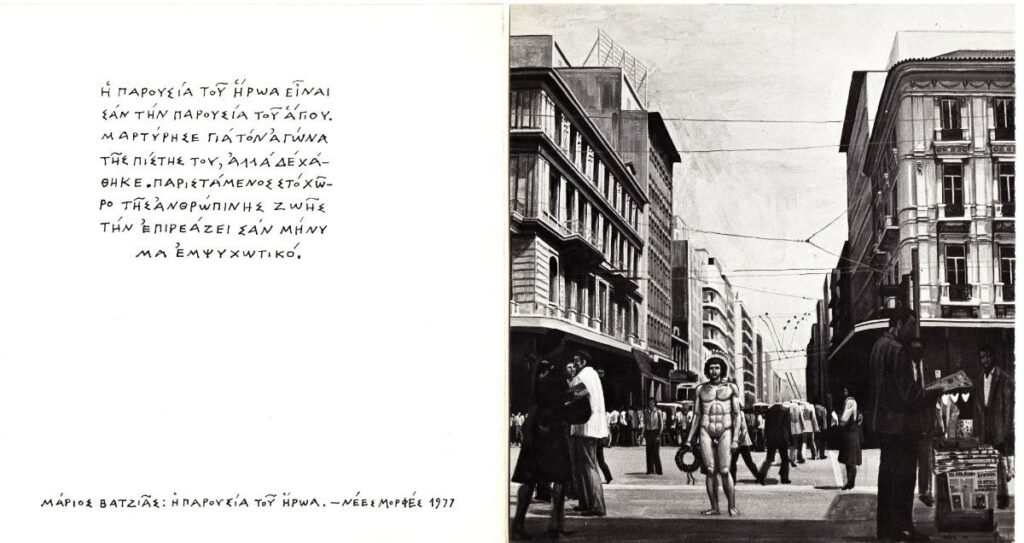 Ἡ ΠΑΡΟΥΣΙΑ ΤΟΥ͂ ἭΡΩΑ ΕἾΝΑΙ
ΣΆΝ ΤΉΝ ΠΑΡΟΥΣΊΑ ΤΟΥ͂ ἉΓΙΟΥ.
ΜΑΡΤΎΡΗΣΕ ΓΙΆ ΤΌΝ ἈΓΩ͂ΝΑ
ΤΗ͂Σ ΠΙΣΤΗΣ ΤΟΥ, ἈΛΛΆ ΔΈ ΧΆ-
ΘΗΚΕ. ΠΑΡΙΣΤΆΜΕΝΟΣ ΣΤΌ ΧΩ͂-
ΡΟ ΤΗ͂Σ ἈΝΘΡΏΠΙΝΗΣ ΖΩΗ͂Σ
ΤΉΝ ἘΠΙΡΕΆΖΕΙ ΣΆΝ ΜΉΝΥ
ΜΑ ἘΜΨΥΧΩΤΙΚΌ.
ΜΆΡΙΟΣ ΒΑΤΖΙΑ͂Σ: Ἡ ΠΑΡΟΥΣΊΑ ΤΟΥ͂ ἭΡΩΑ. – ΝΈΕΣ ΜΟΡΦΈΣ 1977